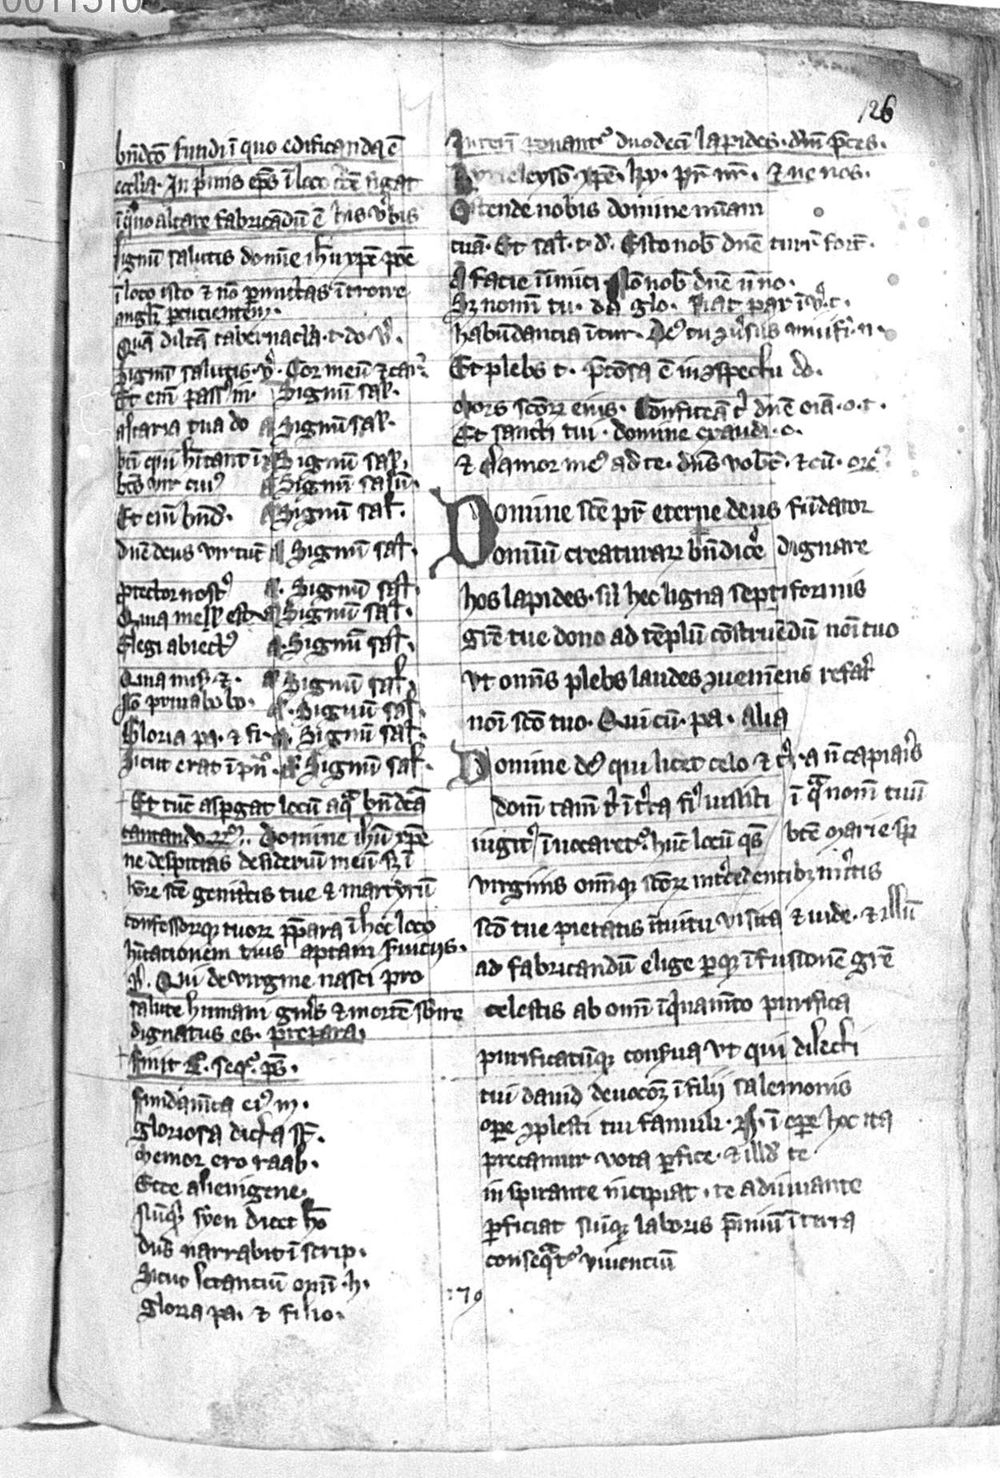 126
bn̄dc̄o fundi ī quo edificanda ē
ecclia. In p̄mis ep̄s ī loco figat
ī quo altare fabricādū ē hiis v̄bis
Signū salutis domīe ih̄u xp̄e pōe
ī loco isto & nō p̄mittas ītroire
angl̄m percucientem.
Quā dilc̄a tabernacla. t. do. v̄.
Signū salutis. v̄. Cor meū & car̄.
Et eni pass' in. Signū sal̄.
altaria tua do a Signū sal̄.
bt̄i qui hītant ī a Signū sal̄.
bt̄s vir cui' a Signū salu.
Et eni bn̄d. a Signū sal̄.
dn̄e deus virtut̄ a Signū sal̄.
p̄tector nost' a. Signū sal̄.
Quia mel' est a Signū sal̄.
Elegi abiect' a. Signū sal̄.
Quia mis̄. &. a Signū sal̄.
Nō p̄uabo bo. a. Signū sal̄.
Gloria pa. & fi. a. Signū sal̄.
Sicut erat ī pn̄. a Signū sal̄.
Et tūc asp̄gat locū aq̄ bn̄dcā
cantando Domine ih̄u xp̄e
ne despicias desideriū meū s̄ ī
hōre sc̄e genit'cis tue & martyrū
confessorūq̄ tuorꝝ p̄para ī hoc loco
hītacionem tuis aptam s̄uiciis.
v̄. Qui de virgine nasci pro
salute humani gn̄is & mortē sbīre
dignatus es. prepara.
finit seq̄. ps̄.
fundam̄ta ei' in.
gloriosa dicta st̄.
Memor ero raab.
Ecce alienigene.
Nūq̄ syon dicet hō
dn̄s narrabit ī scrip.
Sicut letanciū oniū. h.
gloria pa. & filio.
Interī duodecī lapides. dūm p̄ces.
Kyrieleyson. xp̄e. ky. pr̄ nr̄. & ne nos.
Ostende nobis domine miam
tuā. Et sal̄. t. d. Esto nob̄ dn̄e turr' fort̄.
A facie īimici Nō nob̄ dn̄e n̄ no.
S̄ nom̄ tu. da glo. Fiat pax ī v̄. t.
habūdancia ītur. De' tu 9v̄sus viuifi. n.
Et plebs t. p̄ciosa ē in 9spectu do.
Mors sc̄orꝝ eius. Confiteāt̄ dn̄e oīa. o. t.
Et sancti tui. domine exaudi. o.
& clamor me' ad te. dn̄s vobc̄. & cū. orē.
Domine sc̄e pr̄ eterne deus fundator
omniū creaturarꝝ bn̄dice dignare
hos lapides. sil̄ hec ligna septiformis
gr̄e tue dono ad tēplū cōstruēdū noī tuo
vt omīs plebs laudes 9ueniens refat̄
noī sc̄o tuo. Qui cū. pa. alia
Domine de' qui licet celo & t̄. a n̄ capiaris
dom̄ tam̄ ī t̄ra fi' iussisti ī q̄ nom̄ tuū
iugit' īuocaret'. hūc locū q̄s bt̄e Marie sp̄
virginis omīuq̄ sc̄orꝝ int̄cedentibꝫ m̄itis
sc̄o tue pietatis ītuitu visita & vide. & illū
ad fabricandū elige p̄q̄ ī fusionē gr̄e
celestis ab omī īquinam̄to purifica
purificatūq̄ cons̄ua vt qui dilecti
tui dauid deuocōꝫ ī filii salemonis
ope 9plesti tui famuli. ī ope hoc ita
precamur vota p̄fice. & illd te
inspirante incipiat. te adiuuante
p̄ficiat suiq̄ laboris p̄miū ī terra
conseq̄t' viuenciū